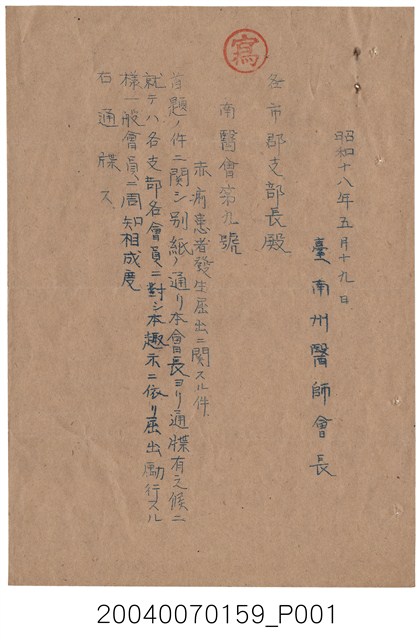 寫
昭和十八年五月十九日
臺南州醫師會長
各市郡支部長殿
南醫會第九號
赤痢患者發生屆出ニ関スル件
首題ノ件ニ関シ別紙ノ通リ本會長ヨリ通牒有之候ニ
就テハ各支部各會員ニ對シ本趣示ニ依リ屆出勵行スル
様一般會員ニ周知相成度
右通牒ス
20040070159_P001